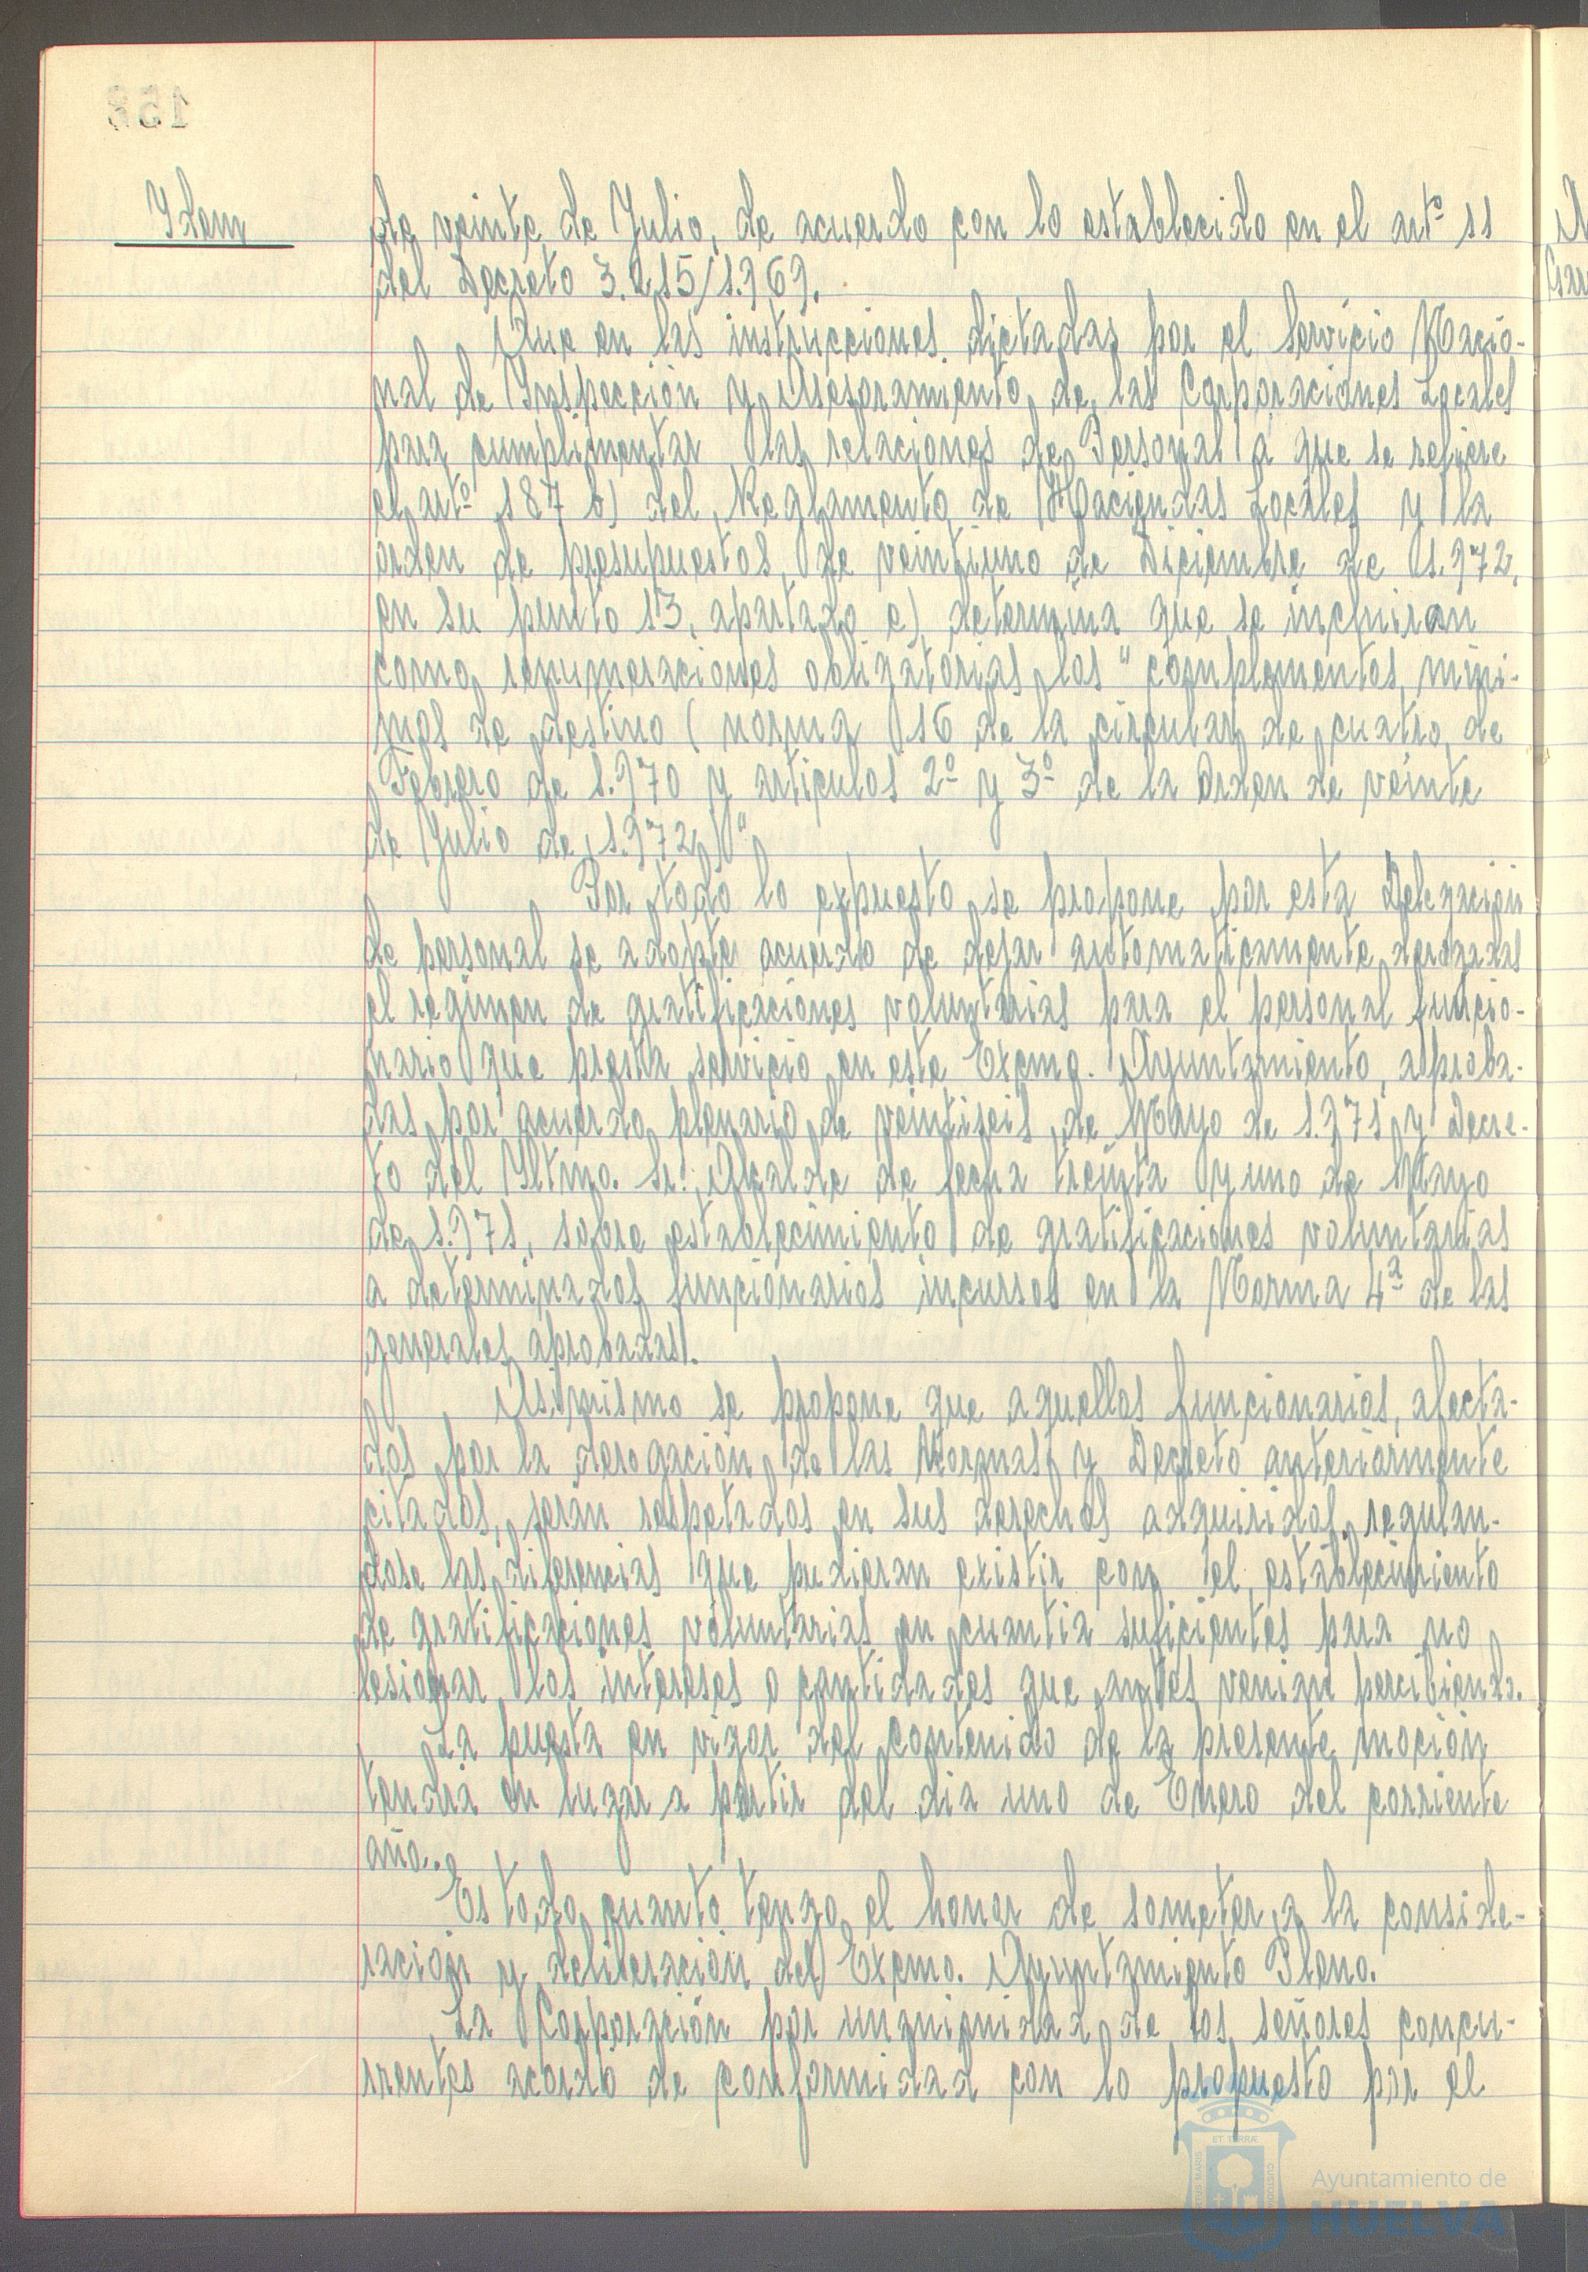 Idem
de veinte de Julio, de acuerdo con lo establecido en el artº 11
del Decreto 3.215/1.969.
Que en las instrucciones dictadas por el Servicio Nacio-
nal de Inspección y Asesoramiento de las Corporaciones Locales
para cumplimentar las relaciones de Personal a que se refiere
el artº 187 b) del Reglamento de Haciendas Locales y la
orden de presupuestos, de veintiuno de Diciembre de 1.972,
en su punto 13, apartado e) determina que se incluiran
como remuneraciones obligatorias los "complementos mini-
mos de destino (norma 16 de la circular de cuatro de
Febrero de 1.970 y articulos 2º y 3º de la Orden de veinte
de Julio de 1.972)"
Por todo lo expuesto se propone por esta Delegación
de personal se adopte acuerdo de dejar automaticamente derogadas
el regimen de gratificaciones voluntarias para el personal funcio-
nario que presta servicio en este Excmo. Ayuntamiento, aproba-
das por acuerdo plenario de veintiseis de Mayo de 1.971 y Decre-
to del Iltmo. Sr. Alcalde de fecha treinta y uno de Mayo
de 1.971, sobre establecimiento de gratificaciones voluntarias
a determinados funcionarios incursos en la Norma 4ª de las
generales aprobadas.
Asimismo se propone que aquellos funcionarios, afecta-
dos por la derogación de las Normas y Decreto anteriormente
citados, serán respetados en sus derechos adquiridos, regulan-
dose las diferencias que pudieran existir con el establecimiento
de gratificaciones voluntarias en cuantia suficientes para no
lesionar los intereses o cantidades que antes venian percibiendo.
La puesta en vigor del contenido de la presente moción
tendrá en lugar a partir del dia uno de Enero del corriente
año.
Es todo cuanto tengo el honor de someter a la conside-
ración y deliberación del Excmo. Ayuntamiento Pleno.
La Corporación por unanimidad de los señores concu-
rrentes acordó de conformidad con lo propuesto por el
Ayuntamiento de
HUELVA